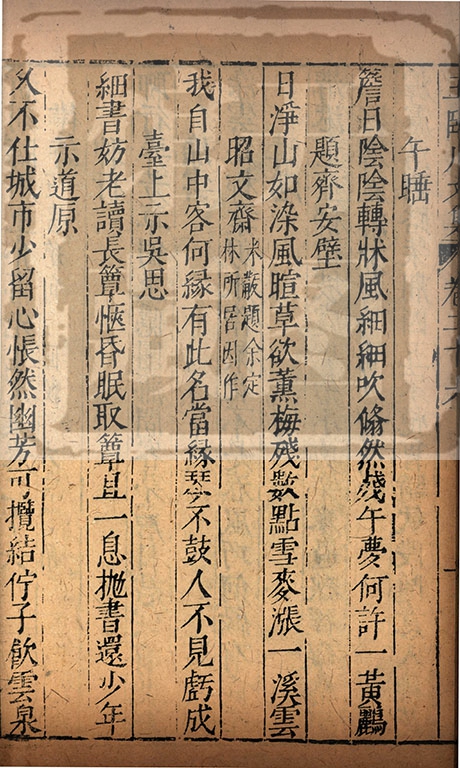 王臨川文集 卷二十六
午睡
簷日陰陰轉牀風細細吹翛然殘午夢何許一黃鸝
題齊安壁
日淨山如染風暄草欲薰梅殘數點雪麥漲一溪雲
昭文齋 米黻題余定林所居因作
我自山中客何緣有此名當緣琴不鼓人不見虧成
臺上示吳思
細書妨老讀長簟愜昏眠取簟且一息抛書還少年
示道原
久不仕城市少留心悵然幽芳可攬結佇子飲雲泉